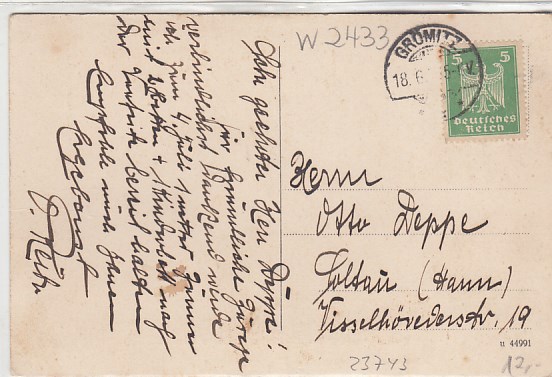 W 2433
GRÖMITZ
18.6
5 5
Deutsches
Reich
Sehr geehrter Herr Deppe!
Für freundliche
verbindlichst dankend würde
ich zum 4 Juli 1
mit 2 Betten + 1 Kinderbett nach
der bereit halten
Empfehle mich Ihnen
Ergebenst
Herrn
Otto Deppe
Soltau (Hann)
Visselhövederstr. 19
u 44991
23743
12,-